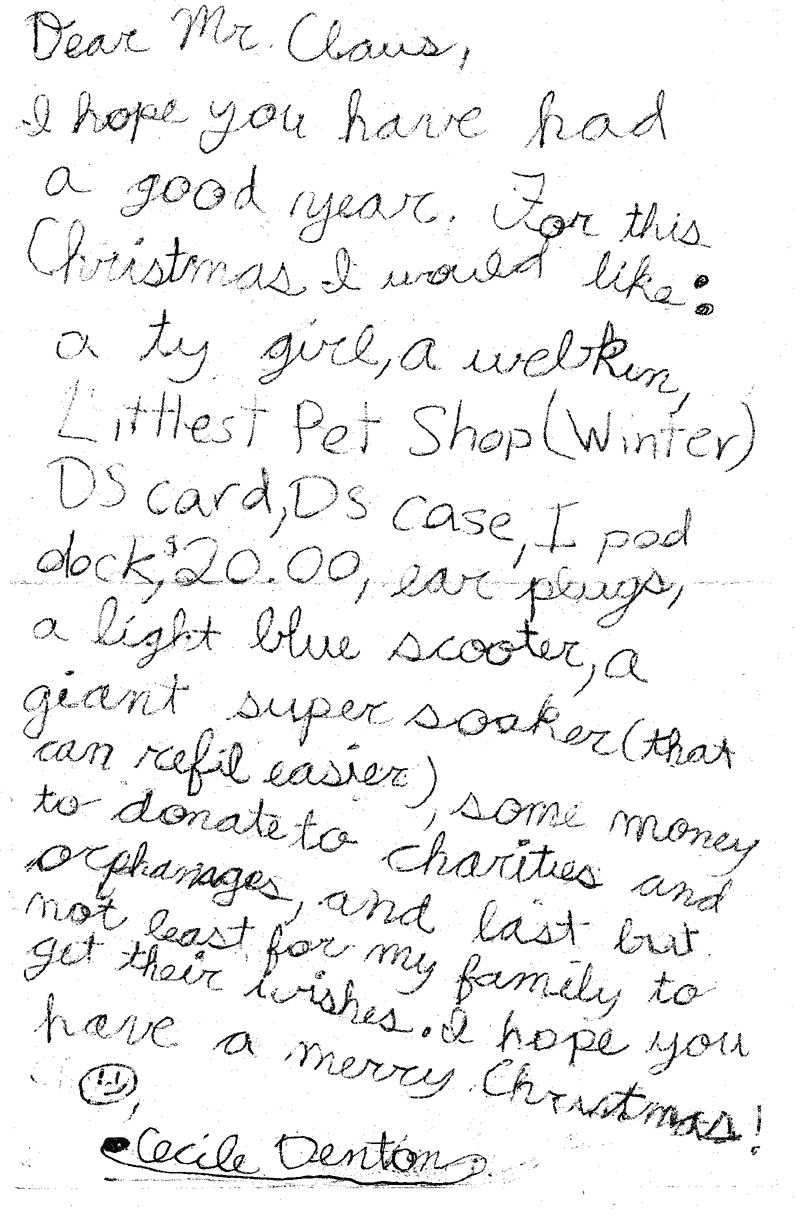 Dear Mr. Claus,
I hope you have had
a good year. For this
Christmas I would like:
a ty girl, a webkin,
Littlest Pet Shop (Winter)
DS card, DS case, I pod
dock, $20.00, ear plugs,
a light blue scooter, a
giant super soaker (that
can refil easier), some money
to donate to charities and
orphanages, and last but
not least for my family to
get their wishes. I hope you
have a merry Christmas!
,
Cecile Denton